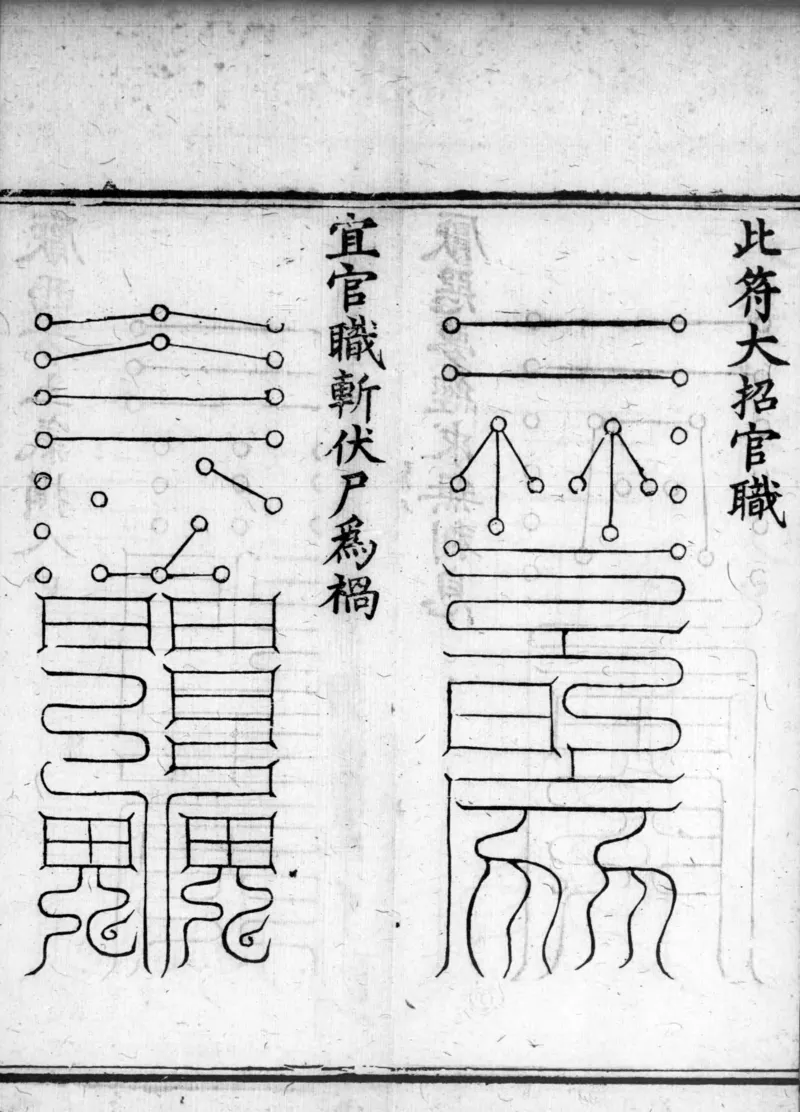 此符大招官職
宜官職斬伏尸為禍